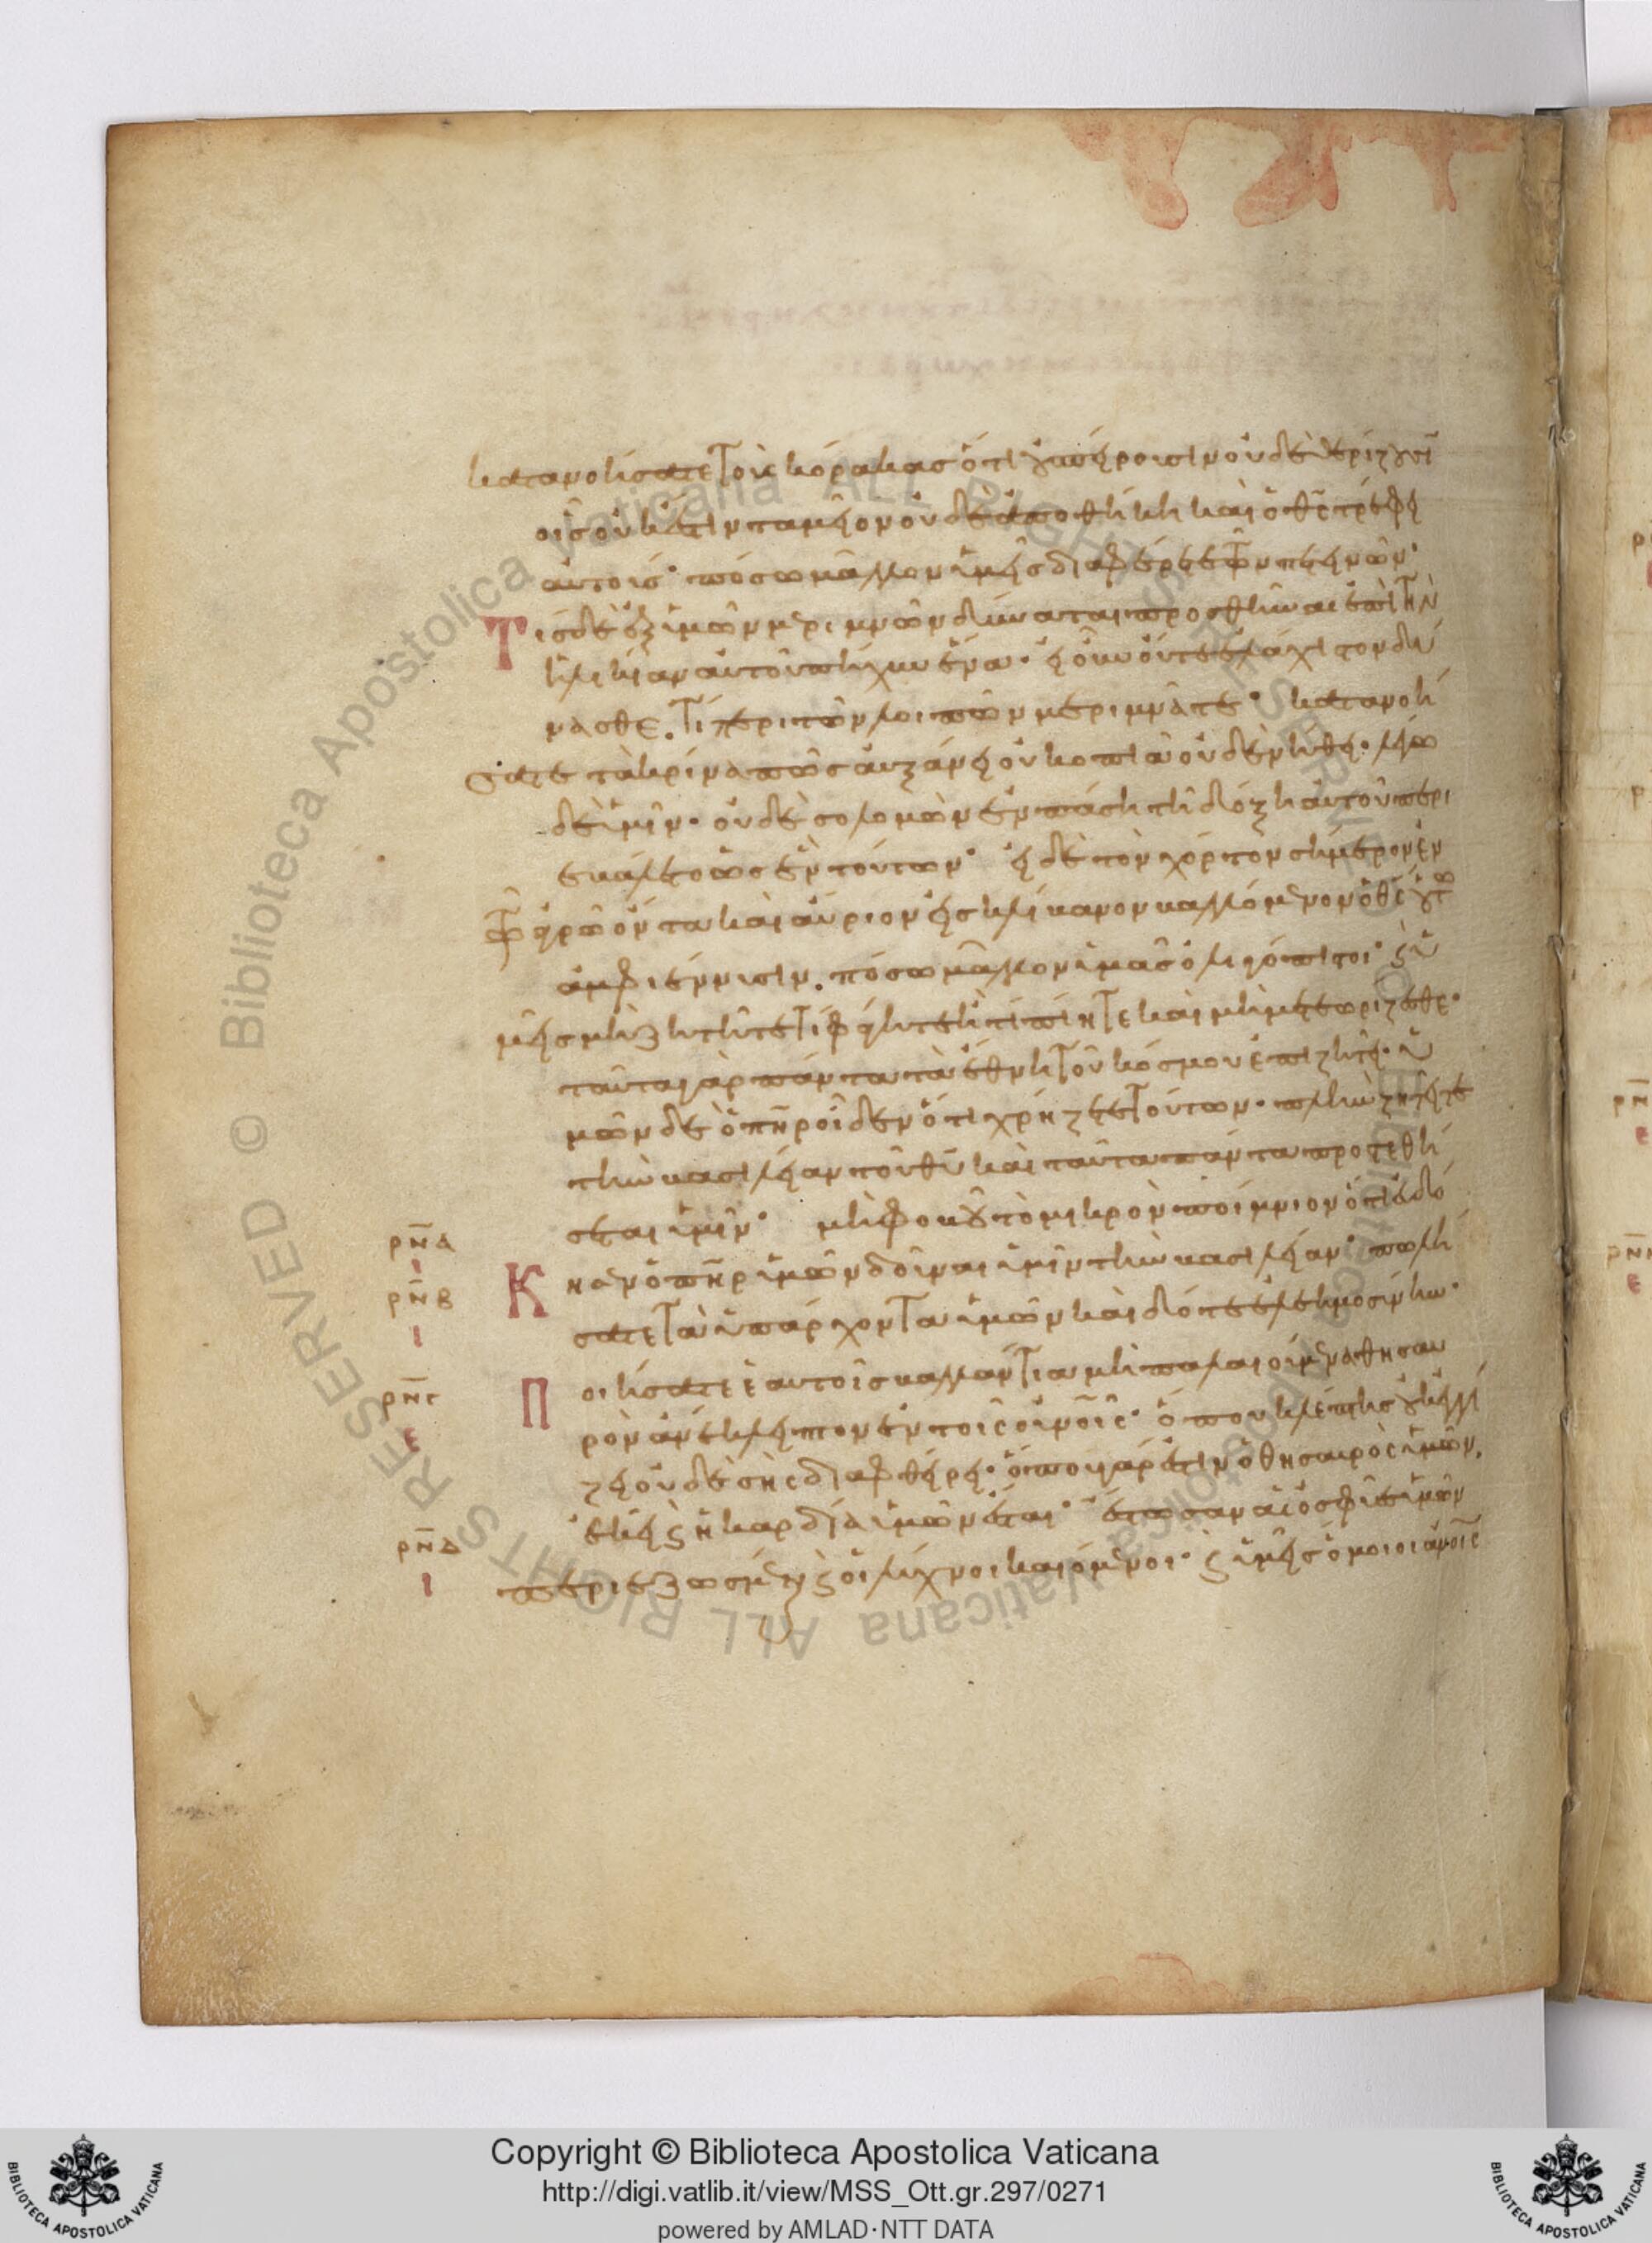 κατανοήσατε τοὺς κόρακας ὅτι οὐ σπείρουσιν οὐδὲ θερίζουσῑ
οἷς οὐκ ἔστιν ταμεῖον οὐδὲ ἀποθήκη καὶ ὁ θς̄ τρέφει
αὐτοὺς· πόσω μᾶλλον ὑμεῖς διαφέρετε τῶν πετεινῶν·
Τίς δὲ ἐξ ὑμῶν μεριμνῶν δύναται προσθεῖναι ἐπὶ τὴν
ἡλικίαν αὐτοῦ πῆχυν ἕνα· εἰ οὖν οὔτε ἐλάχιστον δύ
νασθε. τί περὶ τῶν λοιπῶν μεριμνᾶτε· κατανοή
σατε τὰ κρίνα πῶς αὐξάνει οὐ κοπιᾶ οὐδὲ νήθει· λέγω
δὲ ὑμῖν· οὐδὲ σολομὼν ἐν πάση τῆ δόξη αὐτοῦ περι
εβάλετο ὡς ἓν τούτων· εἰ δὲ τὸν χόρτον σήμερον ἐν
τῶ ἀγρῶ ὄντα καὶ αὔριον εἰς κλίβανον βαλλόμενον ὁ θς̄ οὕτω
ἀμφιέννυσιν. πόσω μᾶλλον ὑμᾶς ὀλιγόπιστοι· καὶ ὑ
μεῖς μὴ ζητεῖτε τί φάγητε ἢ τί πίητε καὶ μὴ μετεωρίζεσθε·
ταῦτα γὰρ πάντα τὰ ἔθνη τοῦ κόσμου ἐπιζητεῖ· ὑ
μῶν δὲ ὁ πη̄ρ οἶδεν ὅτι χρήζετε τούτων· πλὴν ζητεῖτε
τὴν βασιλείαν τοῦ θῡ καὶ ταῦτα πάντα προστεθή
σεται ὑμῖν· μὴ φοβοῦ τὸ μικρὸν ποίμνιον ὅτι εὐδό
ρν̄α
ι
Κησεν ὁ πη̄ρ ὑμῶν δοῦναι ὑμῖν τὴν βασιλείαν· πωλή
ρν̄β
ι
σατε τὰ ὑπάρχοντα ὑμῶν καὶ δότε ἐλεημοσύνην·
ρν̄γ
ε
Ποιήσατε ἑαυτοῖς βαλλάντια μὴ παλαιούμενα θησαυ
ρὸν ἀνέκλειπτον ἐν τοῖς οὐνοῖς· ὅπου κλέπτης οὐκ ἐγγί
ζει οὐδὲ σὴς διαφθείρει· ὅπου γάρ ἐστιν ὁ θησαυρὸς ὑμῶν.
ἐκεῖ καὶ ἡ καρδία ὑμῶν ἔσται· ἔστωσαν αἱ ὀσφύες ὑμῶν
ρν̄δ
ι
περιεζωσμέναι καὶ οἱ λύχνοι καιόμενοι· καὶ ὑμεῖς ὅμοιοι ἀνοῖς
Copyright © Biblioteca Apostolica Vaticana
http://digi.vatlib.it/view/MSS_Ott.gr.297/0271
powered by AMLAD·NTT DATA
BIBLIOTECA APOSTOLICA VATICANA
BIBLIOTECA APOSTOLICA VATICANA
© Biblioteca Apostolica Vaticana ALL RIGHTS RESERVED
© Biblioteca Apostolica Vaticana ALL RIGHTS RESERVED